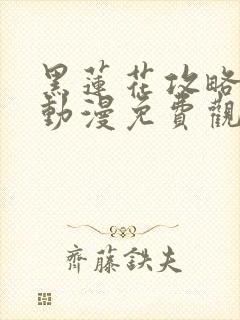 黑蓮花攻略
動漫免費觀
齊藤鉄夫